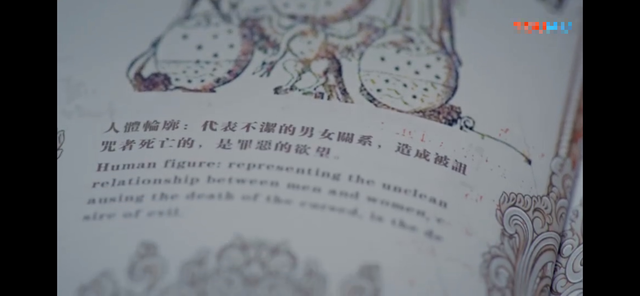 人體輪廓：代表不潔的男女關系，造成被詛
咒者死亡的，是罪惡的欲望。
Human figure: representing the unclean
relationship between men and women, c
ausing the death of the cursed, is the de
sire of evil.